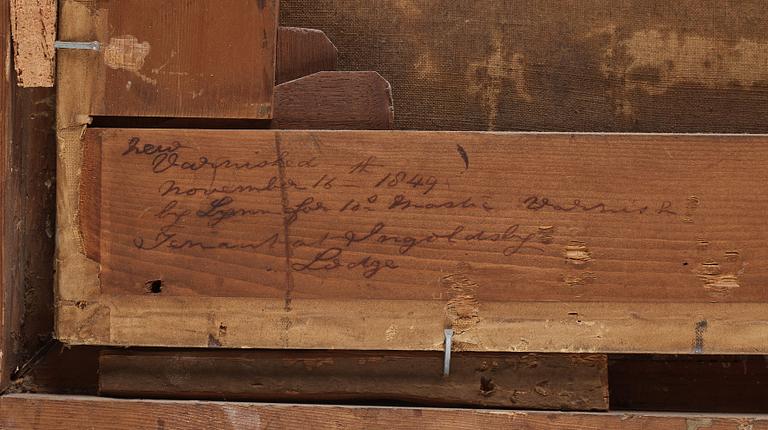 new
Varnished
November 16 - 1849
by Lynn for 10s Mastic Varnish
Tenant at Ingoldsby
Lodge